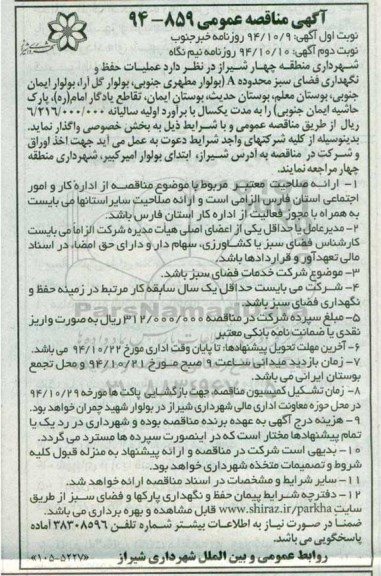 آگهی مناقصه عمومی ۸۵۹- ۹۴
نوبت اول آگهی: ۹۴/۱۰/۹ روزنامه خبرجنوب
نوبت دوم آگهی: ۹۴/۱۰/۱۰ روزنامه نیم نگاه
شهرداری منطقه چهار شیراز در نظر دارد عملیات حفظ و
نگهداری فضای سبز محدوده A (بولوار مطهری جنوبی، بولوار گل آرا، بولوار ایمان
جنوبی، بوستان معلم، بوستان حدیث، بوستان ایمان، تقاطع یادگار امام(ره)، پارک
حاشیه ایمان جنوبی) را به مدت یکسال با برآورد اولیه سالیانه ۶/۲۱۶/۰۰۰/۰۰۰
ریال از طریق مناقصه عمومی و با شرایط ذیل به بخش خصوصی واگذار نماید.
بدینوسیله از کلیه شرکتهای واجد شرایط دعوت به عمل می آید جهت اخذ اوراق
و شرکت در مناقصه به آدرس شیراز، ابتدای بولوار امیرکبیر، شهرداری منطقه
چهار مراجعه نمایند.
۱- ارائه صلاحیت معتبر مربوط با موضوع مناقصه از اداره کار و امور
اجتماعی استان فارس الزامی است و ارائه صلاحیت سایر استانها می بایست
به همراه با مجوز فعالیت از اداره کار استان فارس باشد.
۲- مدیرعامل یا حداقل یکی از اعضای اصلی هیأت مدیره شرکت الزاما می بایست
کارشناس فضای سبز یا کشاورزی، سهام دار و دارای حق امضاء در اسناد
مالی تعهدآور و قراردادها باشد.
۳- موضوع شرکت خدمات فضای سبز باشد.
۴- شرکت می بایست حداقل یک سال سابقه کار مرتبط در زمینه حفظ و
نگهداری فضای سبز باشد.
۵- مبلغ سپرده شرکت در مناقصه ۳۱۲/۰۰۰/۰۰۰ ریال به صورت واریز
نقدی یا ضمانت نامه بانکی معتبر
۶- آخرین مهلت تحویل پیشنهادها: تا پایان وقت اداری مورخ ۹۴/۱۰/۲۲ می باشد.
۷- زمان بازدید میدانی ساعت ۹ صبح مورخ ۹۴/۱۰/۲۱ و محل تجمع
بوستان ایرانی می باشد.
۸- زمان تشکیل کمیسیون مناقصه، جهت بازگشایی پاکت ها مورخه ۹۴/۱۰/۲۹
در محل حوزه معاونت اداری مالی شهرداری شیراز در بولوار شهید چمران خواهد بود.
۹- هزینه درج آگهی به عهده برنده مناقصه بوده و شهرداری در رد یک یا
تمام پیشنهادها مختار است که در اینصورت سپرده ها مسترد می گردد.
۱۰- بدیهی است شرکت در مناقصه و ارائه پیشنهاد به منزله قبول کلیه
شروط و تصمیمات متخذه شهرداری خواهد بود.
۱۱- سایر شرایط و مشخصات در اسناد مناقصه ارائه خواهد شد.
۱۲- دفترچه شرایط پیمان حفظ و نگهداری پارکها و فضای سبز از طریق
سایت www.shiraz.ir/parkha قابل مشاهده و بهره برداری می باشد.
ضمنا در صورت نیاز به اطلاعات بیشتر شماره تلفن ۳۸۳۰۸۰۹۶ آماده
پاسخگویی می باشد.
روابط عمومی و بین الملل شهرداری شیراز
«۱۰۵-۵۲۲۷»